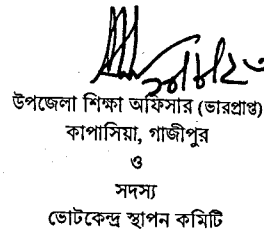 উপজেলা শিক্ষা অফিসার (ভারপ্রাপ্ত)
কাপাসিয়া, গাজীপুর
ও
সদস্য
ভোটকেন্দ্র স্থাপন কমিটি